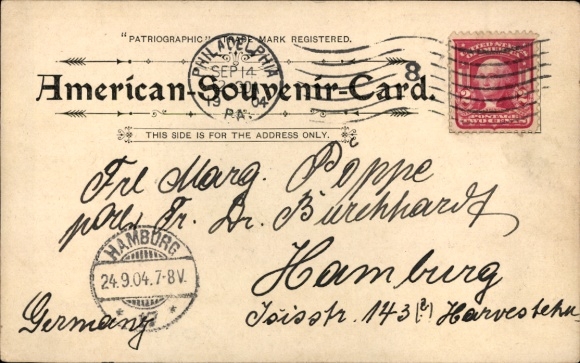 "PATRIOGRAPHIC" TRADE MARK REGISTERED.
American-Souvenir-Card.
THIS SIDE IS FOR THE ADDRESS ONLY.
PHILADELPHIA
SEP 14
1904
PA.
8
UNITED STATES
POSTAGE
2 TWO CENTS 2
Frl Marg. Poppe
Fr. Dr. Burchhardt
Hamburg
Isisstr. 143(?) Harvestehu
Germany
HAMBURG
24.9.04.7-8V.
* 17 *